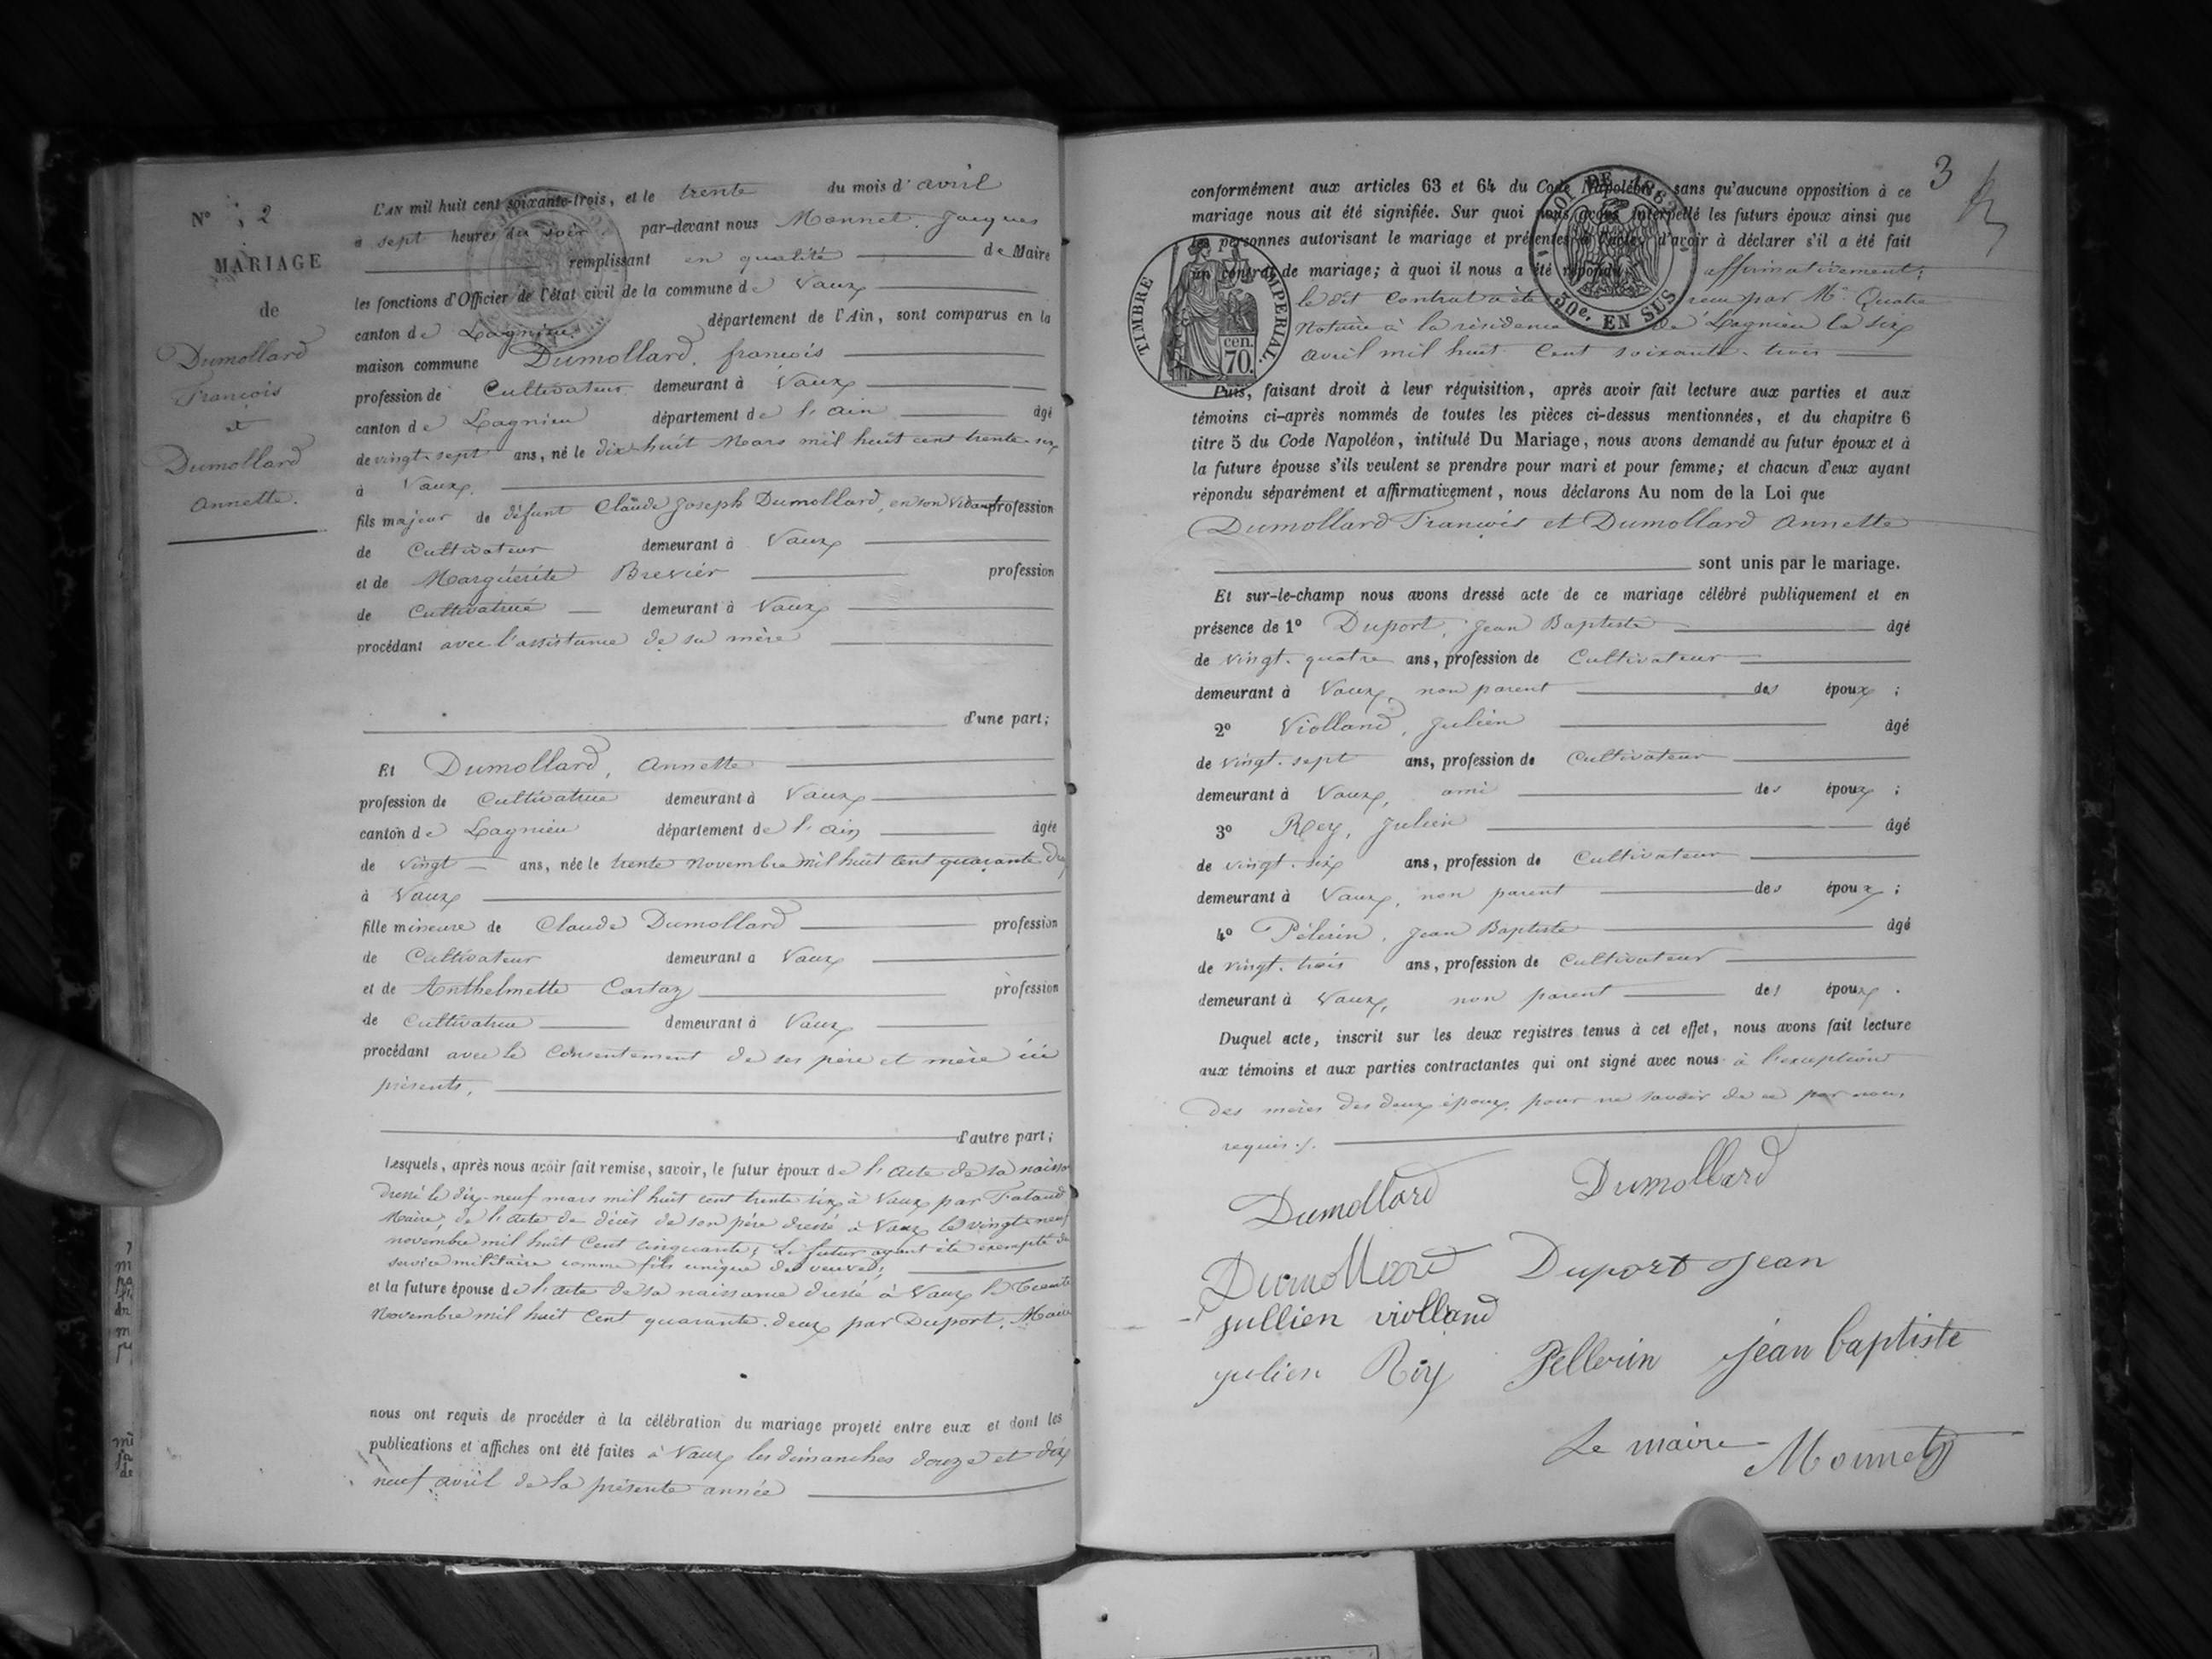 N° 2
MARIAGE
de
Dumollard
François
et
Dumollard
Annette.
L'AN mil huit cent soixante-trois, et le trente du mois d'avril
à sept heures du soir par-devant nous Monnet, Jacques
remplissant en qualité de Maire
les fonctions d'Officier de l'état civil de la commune de Vaux
canton de Lagnieu département de l'Ain, sont comparus en la
maison commune Dumollard, françois
profession de Cultivateur demeurant à Vaux
canton de Lagnieu département de l'ain âgé
de vingt-sept ans, né le dix-huit Mars mil huit cent trente-six
à Vaux
fils majeur de défunt Claude Joseph Dumollard, en son vivant profession
de Cultivateur demeurant à Vaux
et de Marguérite Brevier profession
de Cultivatrice demeurant à Vaux
procédant avec l'assistance de sa mère
d'une part;
Et Dumollard, Annette
profession de Cultivatrice demeurant à Vaux
canton de Lagnieu département de l'ain âgée
de vingt ans, née le trente Novembre mil huit cent quarante
à Vaux
fille mineure de Claude Dumollard profession
de Cultivateur demeurant à Vaux
et de Anthelmette Cartaz profession
de Cultivatrice demeurant à Vaux
procédant avec le Consentement de ses père et mère ici
présents,
d'autre part;
Lesquels, après nous avoir fait remise, savoir, le futur époux de l'acte de sa
Dressé le dix-neuf mars mil huit cent trente six à Vaux par
Maire, de l'acte de décès de son père dressé à Vaux le vingt-neuf
novembre mil huit Cent cinquante; Le futur ayant été exempté du
service militaire comme fils unique de veuve;
et la future épouse de l'acte de sa naissance dressé à Vaux le trente
Novembre mil huit Cent quarante-deux par Duport, Maire
nous ont requis de procéder à la célébration du mariage projeté entre eux et dont les
publications et affiches ont été faites à Vaux les dimanches douze et dix
neuf avril de la présente année
3
conformément aux articles 63 et 64 du Code Napoléon, sans qu'aucune opposition à ce
mariage nous ait été signifiée. Sur quoi nous avons interpellé les futurs époux ainsi que
les personnes autorisant le mariage et présentes à l'acte, d'avoir à déclarer s'il a été fait
un contrat de mariage; à quoi il nous a été répondu affirmativement;
le dit Contrat a été reçu par Me Quatre
Notaire à la résidence de Lagnieu le six
avril mil huit Cent soixante-trois
TIMBRE IMPERIAL.
cen.
70.
50c. EN SUS
Puis, faisant droit à leur réquisition, après avoir fait lecture aux parties et aux
témoins ci-après nommés de toutes les pièces ci-dessus mentionnées, et du chapitre 6
titre 5 du Code Napoléon, intitulé Du Mariage, nous avons demandé au futur époux et à
la future épouse s'ils veulent se prendre pour mari et pour femme; et chacun d'eux ayant
répondu séparément et affirmativement, nous déclarons Au nom de la Loi que
Dumollard François et Dumollard Annette
sont unis par le mariage.
Et sur-le-champ nous avons dressé acte de ce mariage célébré publiquement et en
présence de 1° Duport, Jean Baptiste âgé
de vingt-quatre ans, profession de Cultivateur
demeurant à Vaux, non parent des époux;
2° Violland, Julien âgé
de vingt-sept ans, profession de Cultivateur
demeurant à Vaux, ami des époux;
3° Rey, Julien âgé
de vingt-six ans, profession de Cultivateur
demeurant à Vaux, non parent des époux;
4° Pélerin, Jean Baptiste âgé
de vingt-trois ans, profession de Cultivateur
demeurant à Vaux, non parent des époux.
Duquel acte, inscrit sur les deux registres tenus à cet effet, nous avons fait lecture
aux témoins et aux parties contractantes qui ont signé avec nous à l'exception
des mères des deux époux pour ne savoir de ce par nous
requis./.
Dumollard Dumollard
Dumollard Duport Jean
jullien violland
julien Rey Pellerin jean baptiste
Le maire Monnet